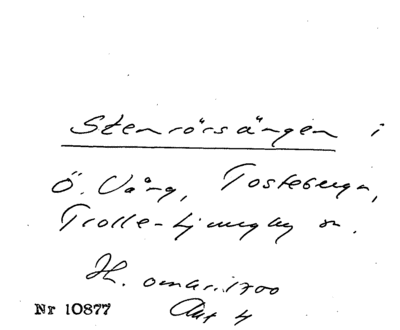 Stenrörsängen i
Ö. Vång, Tosteberga,
Trolle-Ljungby sn.
H. omkr. 1700
Akt 4
Nr 10877